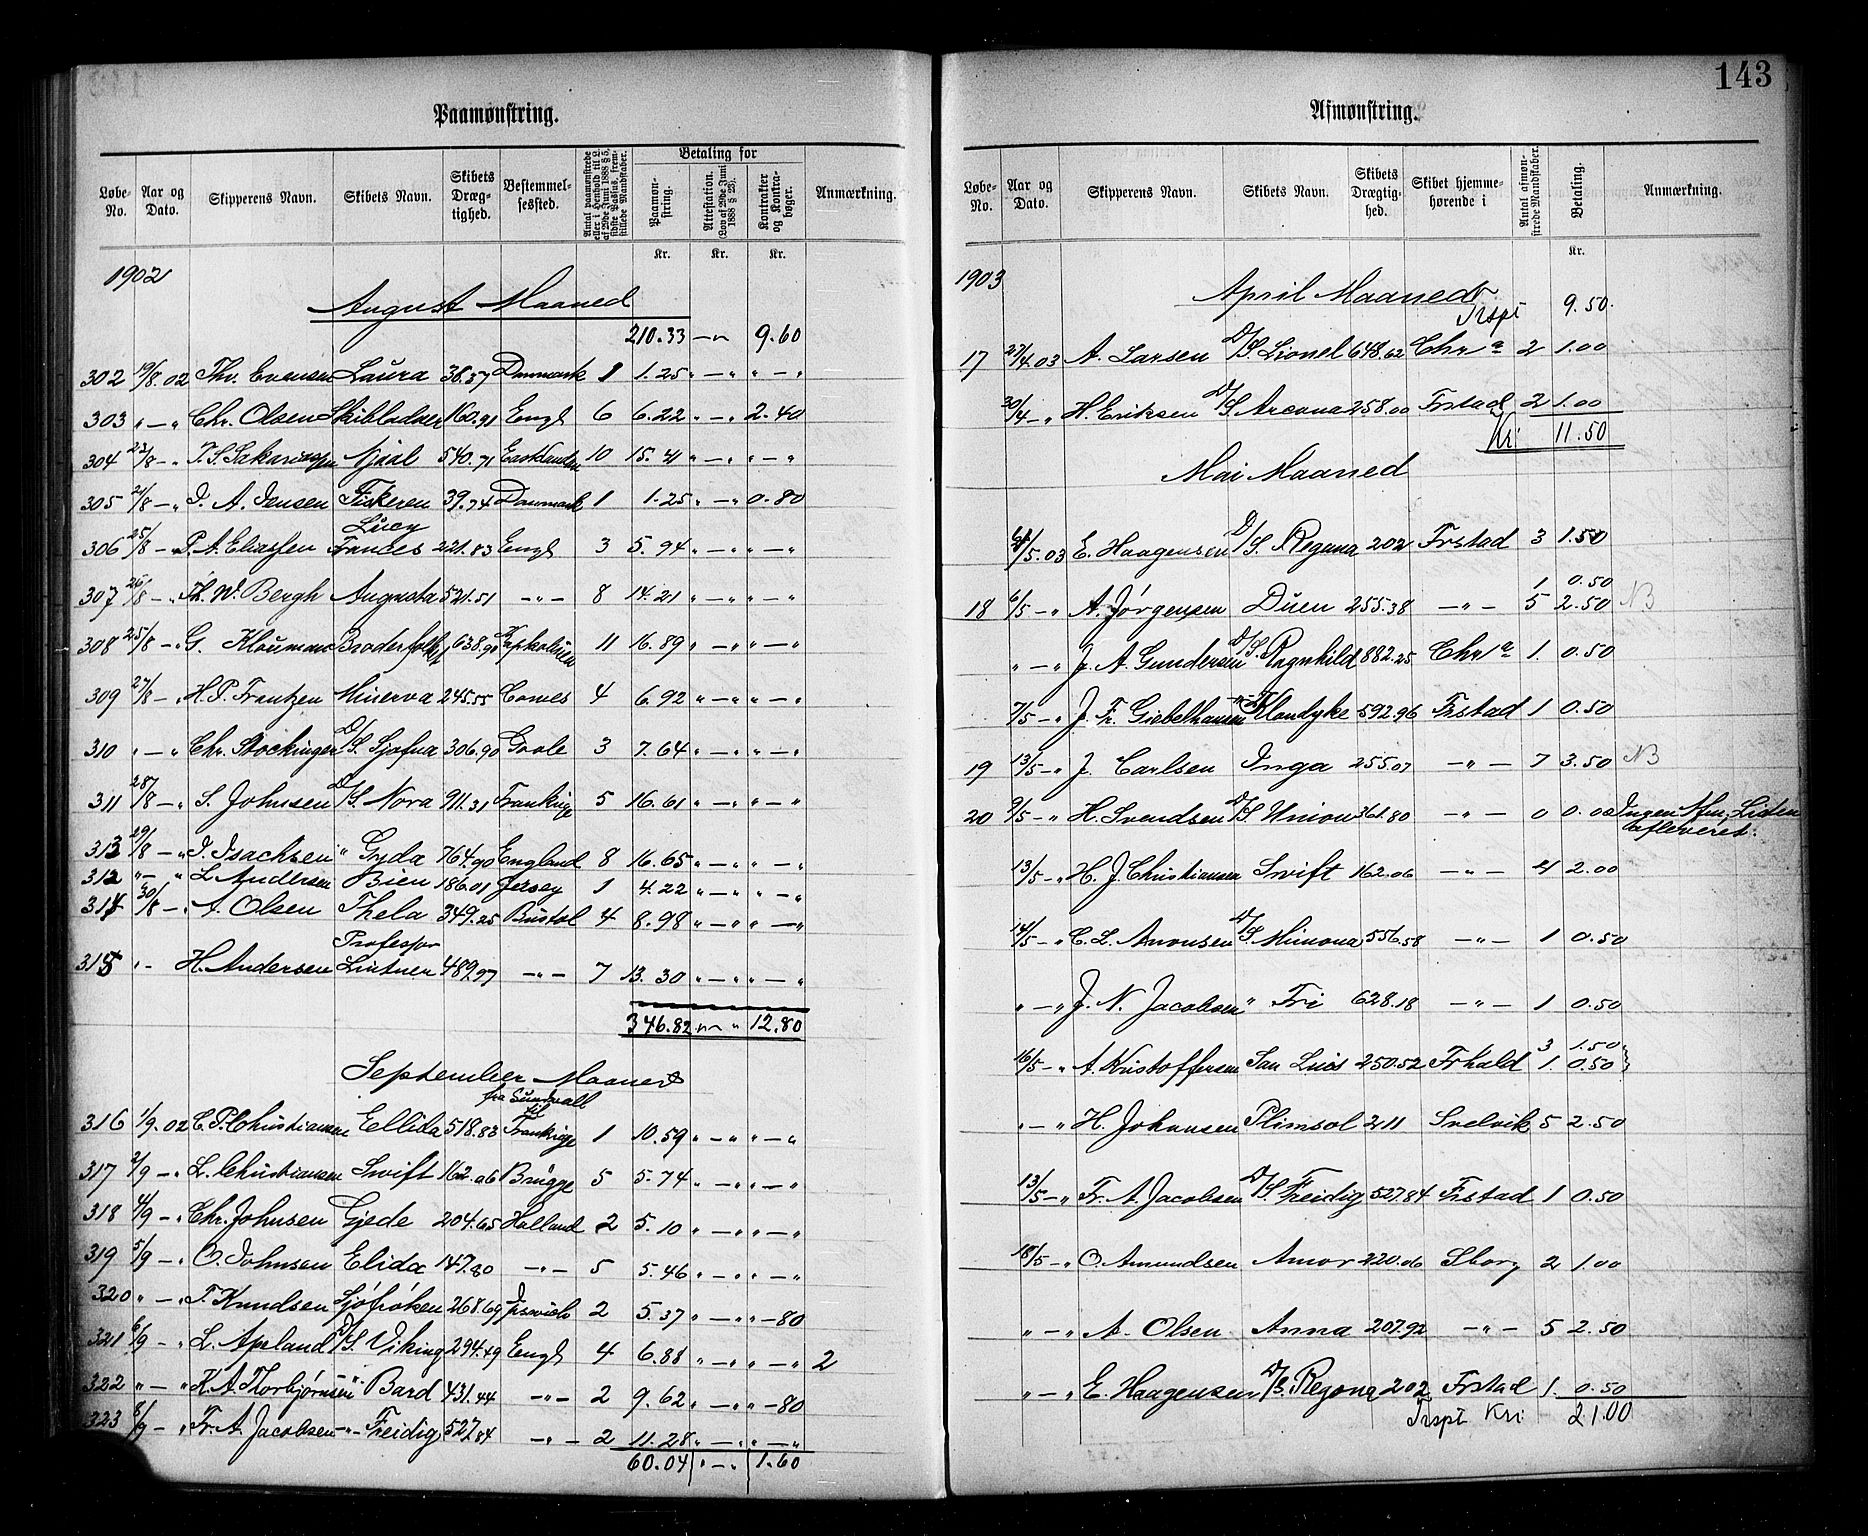 Paamønstring.
Løbe-No. Aar og Dato. Skipperens Navn. Skibets Navn. Skibets Dræg-tighed. Bestemmel-sessted. Antal paamønstrede eller i Henhold til 2. af 29de Juni 1888 § 5, sidste Passus, frem-stillede Mandskaber. Betaling for Paamøn-string. Attestation. (Lov af 29de Juni 1888 § 23). Kontrakter og Kontra-bøger. Anmærkning.
Kr. Kr. Kr.
1902
August Maaned
210.33 — " 9.60
302 19/8.02 Thv. Evensen Laura 38.37 Danmark 1 1.25 " — " " — "
303 " — " Chr. Olsen Skibladner 160.91 Engl 6 6.22 " — " 2.40
304 23/8 — " Njaal 540.71 East London 10 15.41 " — " " — "
305 21/8 — " J. A. Jensen Fiskeren 39.74 Danmark 1 1.25 " — " 0.80
306 25/8 — " P. A. Eliassen Lucy Frances 221.83 Engl 3 5.94 " — " " — "
307 26/8 — " Th. W. Bergh Augusta 521.51 — " — 8 14.21 " — " " — "
308 25/8 — " G. Kloumann Broderfolket 638.90 Kapkolinien 11 16.89 " — " " — "
309 27/8 — " H. P. Frantzen Minerva 245.55 Cowes 4 6.92 " — " " — "
310 " — " Chr. Stockinger D/S Sjofna 306.90 Goole 3 7.64 " — " " — "
311 28/8 — " S. Johnsen D/S Nora 911.31 Frankrige 5 16.61 " — " " — "
313 29/8 — " J. Isachsen " Gyda 764.90 England 8 16.65 " — " " — "
312 " — " L. Andersen Bien 186.01 Jersey 1 4.22 " — " " — "
314 30/8 — " A. Olsen Thela 349.25 Bristol 4 8.98 " — " " — "
315 " - H. Andersen Professor Lintner 489.97 — " — 7 13.30 " — " " — "
346.82 " — " 12.80
September Maaned
316 1/9.02 C. P. Christiansen Ellida 518.83 fra Sundsvall til Frankrige 1 10.59 " — " " — "
317 2/9 — " L. Christiansen Swift 162.06 Brügge 5 5.74 " — " " — "
318 4/9 — " Chr. Johnsen Gjede 204.65 Holland 2 5.10 " — " " — "
319 5/9 — " O. Johnsen Elida 147.80 — " — 5 5.46 " — " " — "
320 " — " T. Knudsen Sjöfröken 268.69 Ipswich 2 5.37 " — " " — 80
321 6/9 — " L. Apeland D/S Viking 294.49 Engl 4 6.88 " — " " — " 2
322 " — " K. A. Thorbjørnsen — " Bard 431.44 — " — 2 9.62 " — " " — 80
323 8/9 — " Fr. A. Jacobsen — " Freidig 527.84 — " — 2 11.28 " — " " — "
60.04 " — " 1.60
143
Afmønstring.
Løbe-No. Aar og Dato. Skipperens Navn. Skibets Navn. Skibets Drægtig-hed. Skibet hjemme-hørende i Antal afmøn-strede Mandskaber. Betaling. Anmærkning.
Kr.
1903
April Maaned
Trspt 9.50
17 27/4.03 A. Larsen D/S Lionel 648.62 Chr a 2 1.00
30/4 — " H. Eriksen D/S Arcona 258.00 Frstad 2 1.00
Kr: 11.50
Mai Maaned
4/5.03 E. Haagensen D/S Regana 202 Frstad 3 1.50
1 0.50
18 6/5 — " A. Jörgensen Duen 255.38 — " — 5 2.50 NB
" — " J. A. Gundersen D/S. Ragnhild 882.25 Chr a 1. 0.50
7/5 — " J. Fr. Giebelhausen — " — Klondyke 592.96 Frstad 1 0.50
19 13/5 — " J. Carlsen Inga 255.07 — " — 7 3.50 NB
20 9/5 — " H. Svendsen D/S Union 361.80 — " — 0 0.00 Ingen Afm. Listen afleveret.
13/5 — " H. J. Christiansen Swift 162.06 — " — 4 2.00
14/5 — " C. L. Amonsen D/S Mimona 556.58 — " — 1 0.50
" — " J. N. Jacobsen " Fri 628.18 — " — 1 0.50
3 1.50
16/5 — " A. Kristoffersen San Luis 250.52 Frhald 1 0.50
" — " H. Johansen Plimsol 211 Svelvik 5 2.50
13/5 — " Fr. A. Jacobsen D/S Freidig 527.84 Frstad 1 0.50
18/5 — " O. Amundsen Amor 220.06 Sborg 2 1.00
" — " A. Olsen Anna 207.92 — " — 5 2.50
" — " E. Haagensen D/S. Regana 202 Frstad 1. 0.50
Trspt Kr: 21.00